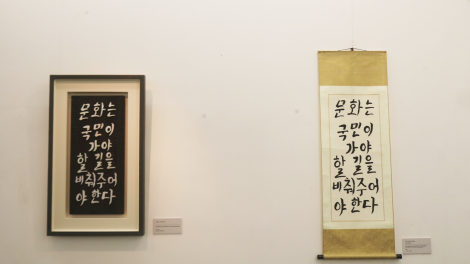 문화는
국민이
가야
할 길을
비춰주어
야 한다
문화는
국민이
가야
할 길을
비춰주어
야 한다